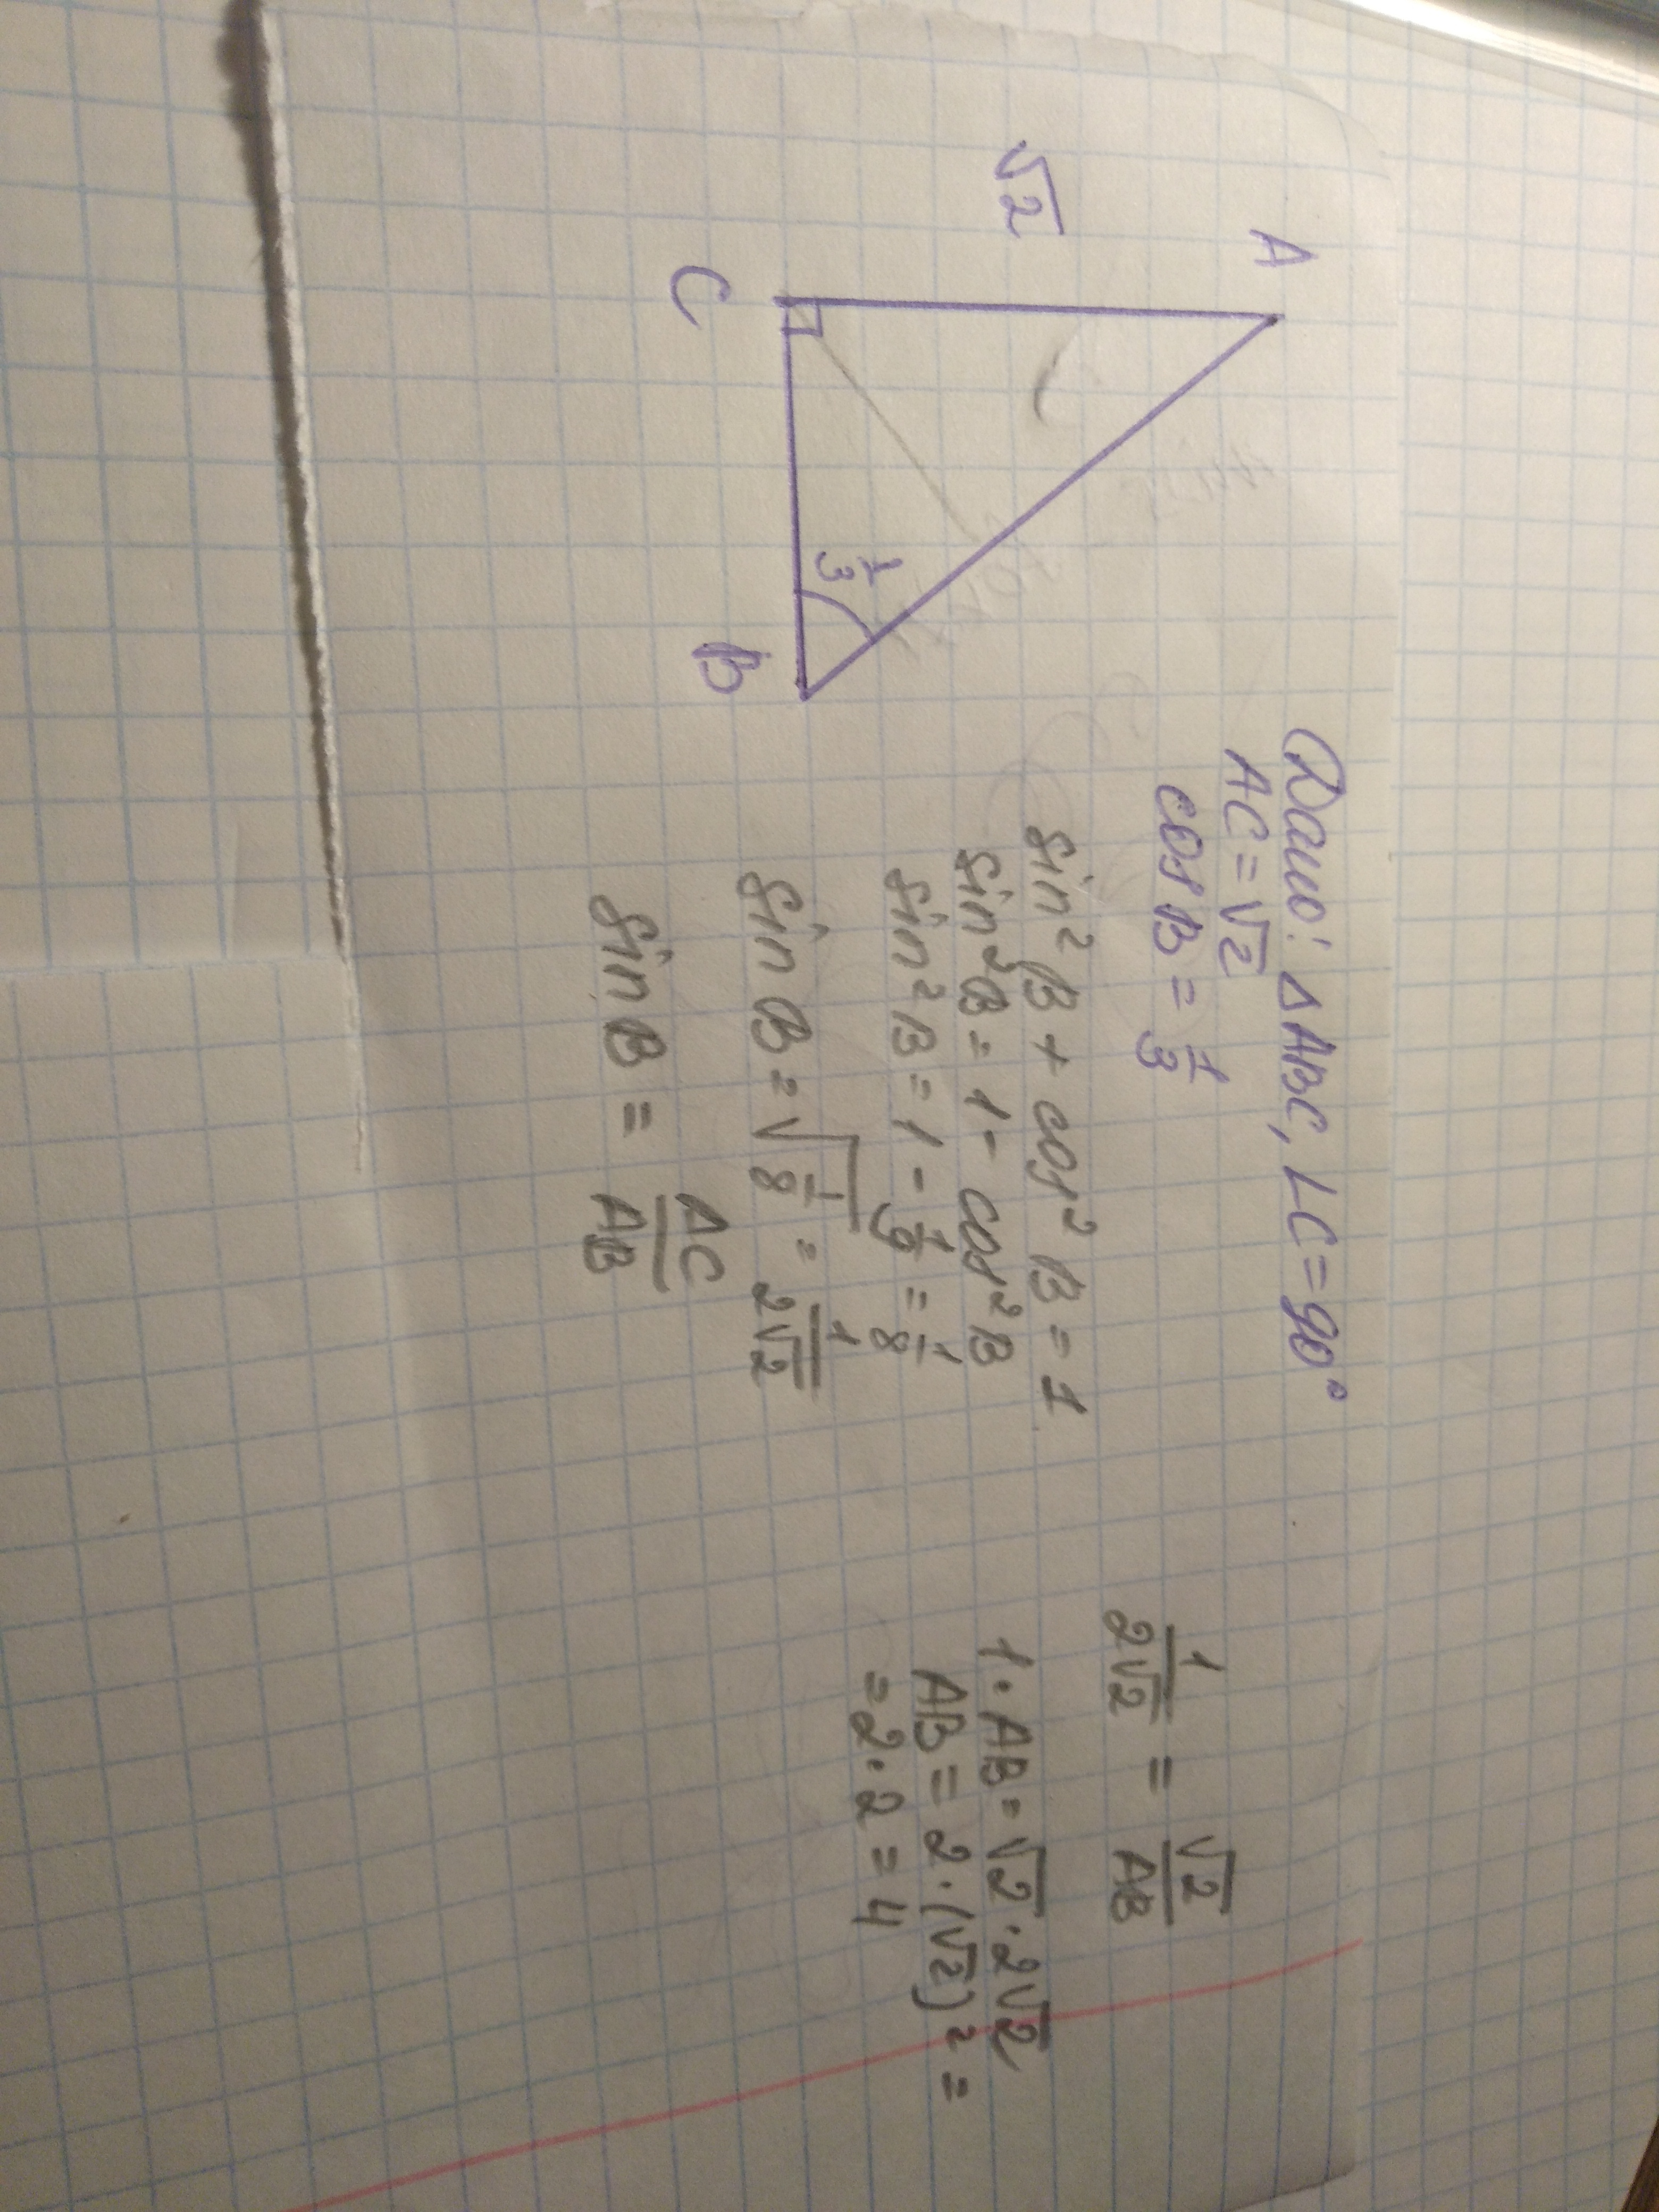 A
√2
C
1/3
B
Дано: △ABC, ∠C=90°
AC=√2
cos B = 1/3
sin² B + cos² B = 1
sin² B = 1 - cos² B
sin² B = 1 - 1/9 = 1/8
sin B = √1/8 = 1/2√2
sin B = AC/AB
1/2√2 = √2/AB
1·AB = √2·2√2
AB = 2·(√2)² =
= 2·2 = 4